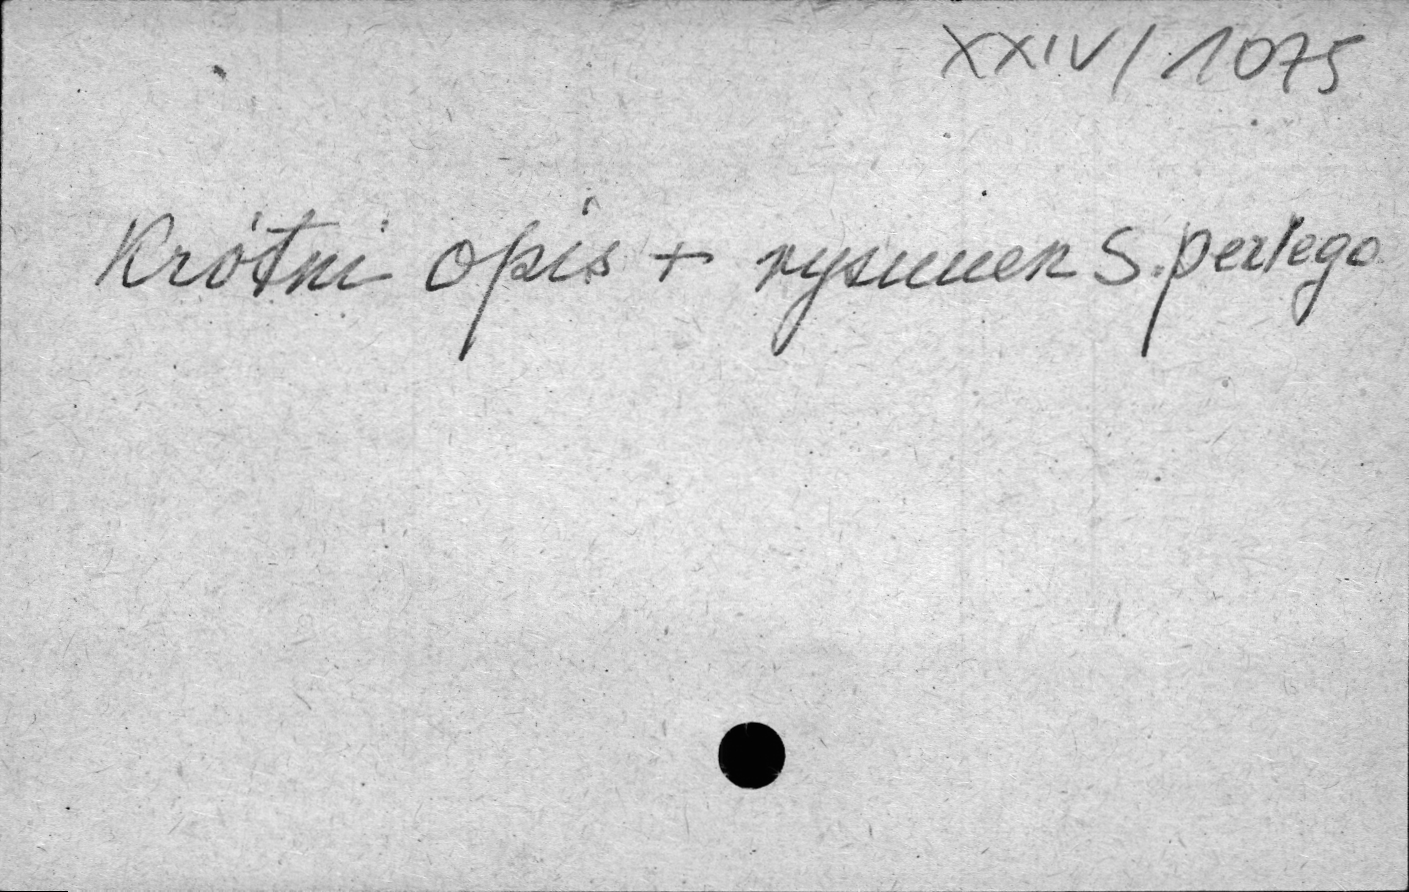 XXIV/1075
Krótni opis + rysunek S. perlego